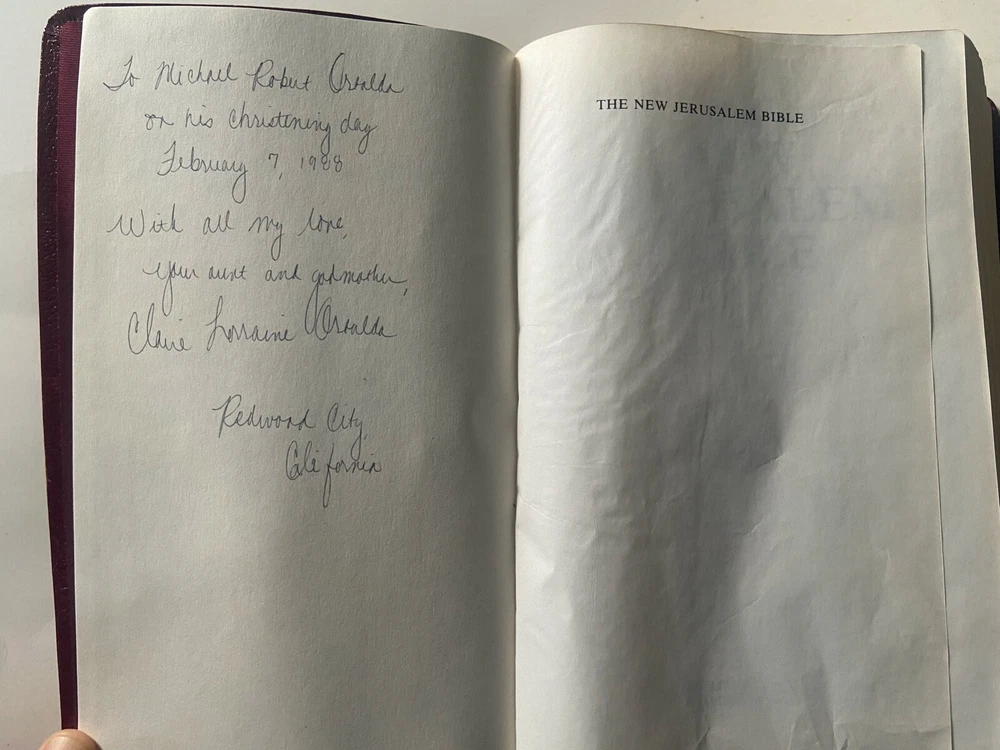 To Michael Robert Osvalda
on his christening day
February 7, 1988
With all my love,
your aunt and godmother,
Claire Lorraine Osvalda
Redwood City,
California
THE NEW JERUSALEM BIBLE